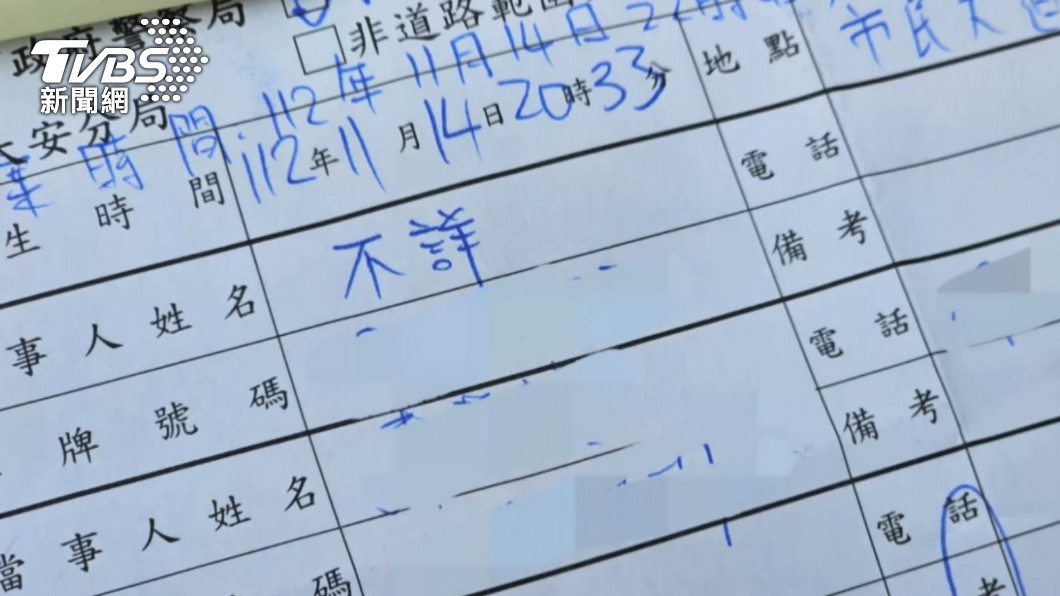 政府警察局
非道路範圍
TVBS
新聞網
大安分局
時間:112年11月14日22時
生時間 112年11月14日20時33分 地點 市民大道
事人姓名 不詳 電話
牌號碼 備考
當事人姓名 電話
碼 備考
電話
考